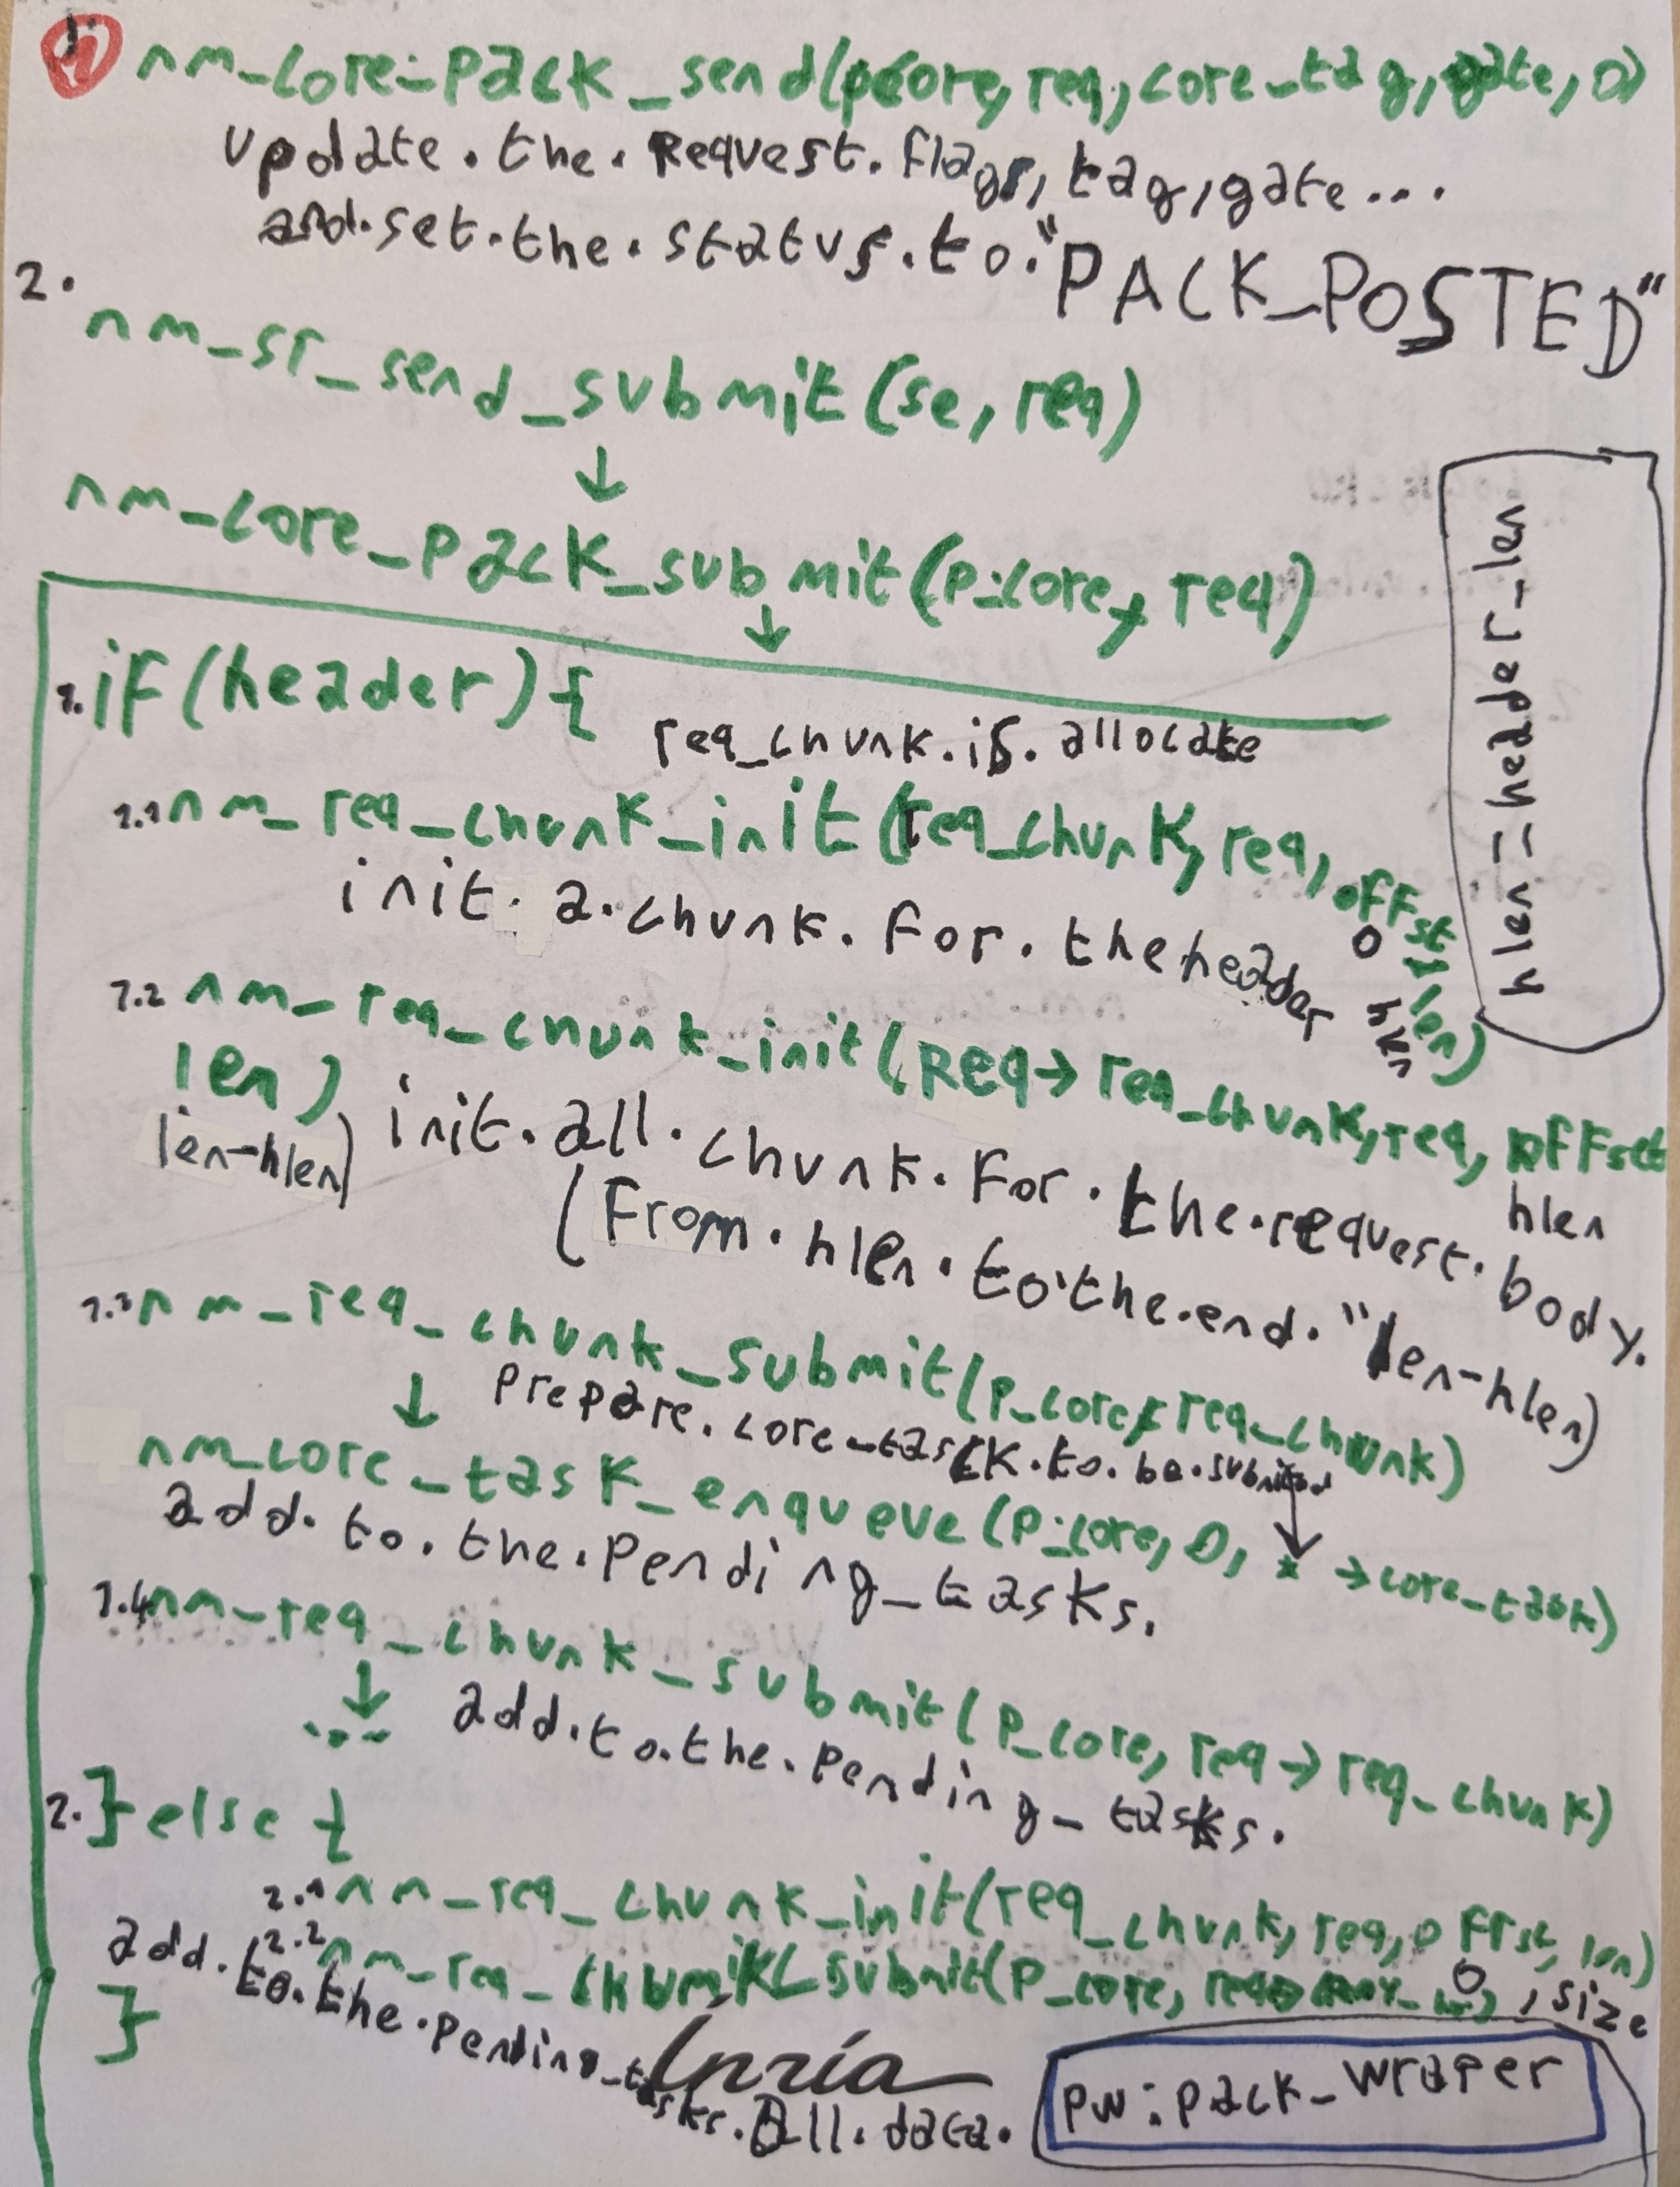 1.
nm_core_pack_send(pcore, req, core_tag, gate, 0)
update.the.Request.flags, tag, gate...
and.set.the.status.to."PACK_POSTED"
2.
nm_sr_send_submit(se, req)
↓
nm_core_pack_submit(p_core, req)
↓
hlen = header_len
1. if(header){
req_chunk.is.allocate
1.1 nm_req_chunk_init(req_chunk, req, offst, len)
0 hlen
init.a.chunk.for.the header
1.2 nm_req_chunk_init(Req→req_chunk, req, offset
hlen
len)
len-hlen)
init.all.chunk.For.the.request.body.
(From.hlen.to.the.end."len-hlen)
1.3 nm_req_chunk_submit(p_core, req_chunk)
↓ Prepare.core_task.to.be.submited
nm_core_task_enqueue(p_core, 0, * →core_task)
add.to.the.Pending_tasks.
1.4 nm_req_chunk_submit(p_core, req→req_chunk)
↓
...
add.to.the.Pending_tasks.
2. }else{
2.1 nm_req_chunk_init(req_chunk, req, offst, len)
0, size
2.2 nm_req_chunk_submit(p_core,
add.to.the.pending_tasks.All.data.
}
Inria
pw: pack_wraper